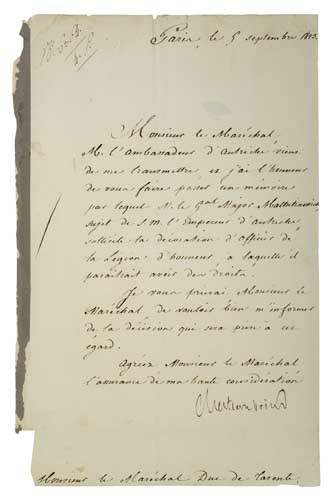 Paris, le 5 septembre
Monsieur le Maréchal
M. l'ambassadeur d'autriche vient
de me transmettre et j'ai l'honneur
de vous faire passer un mémoire
par lequel M. le Gal Major
sujet de S. M. l'Empereur d'autriche
sollicite la décoration d'officier de
la Légion d'honneur à laquelle il
paraîtrait avoir des droits.
Je vous prierai Monsieur le
Maréchal de vouloir bien m'informer
de la décision qui sera prise à cet
égard.
agréez Monsieur le Maréchal
l'assurance de ma haute considération
Chateaubriand
Monsieur le Maréchal Duc de Tarente